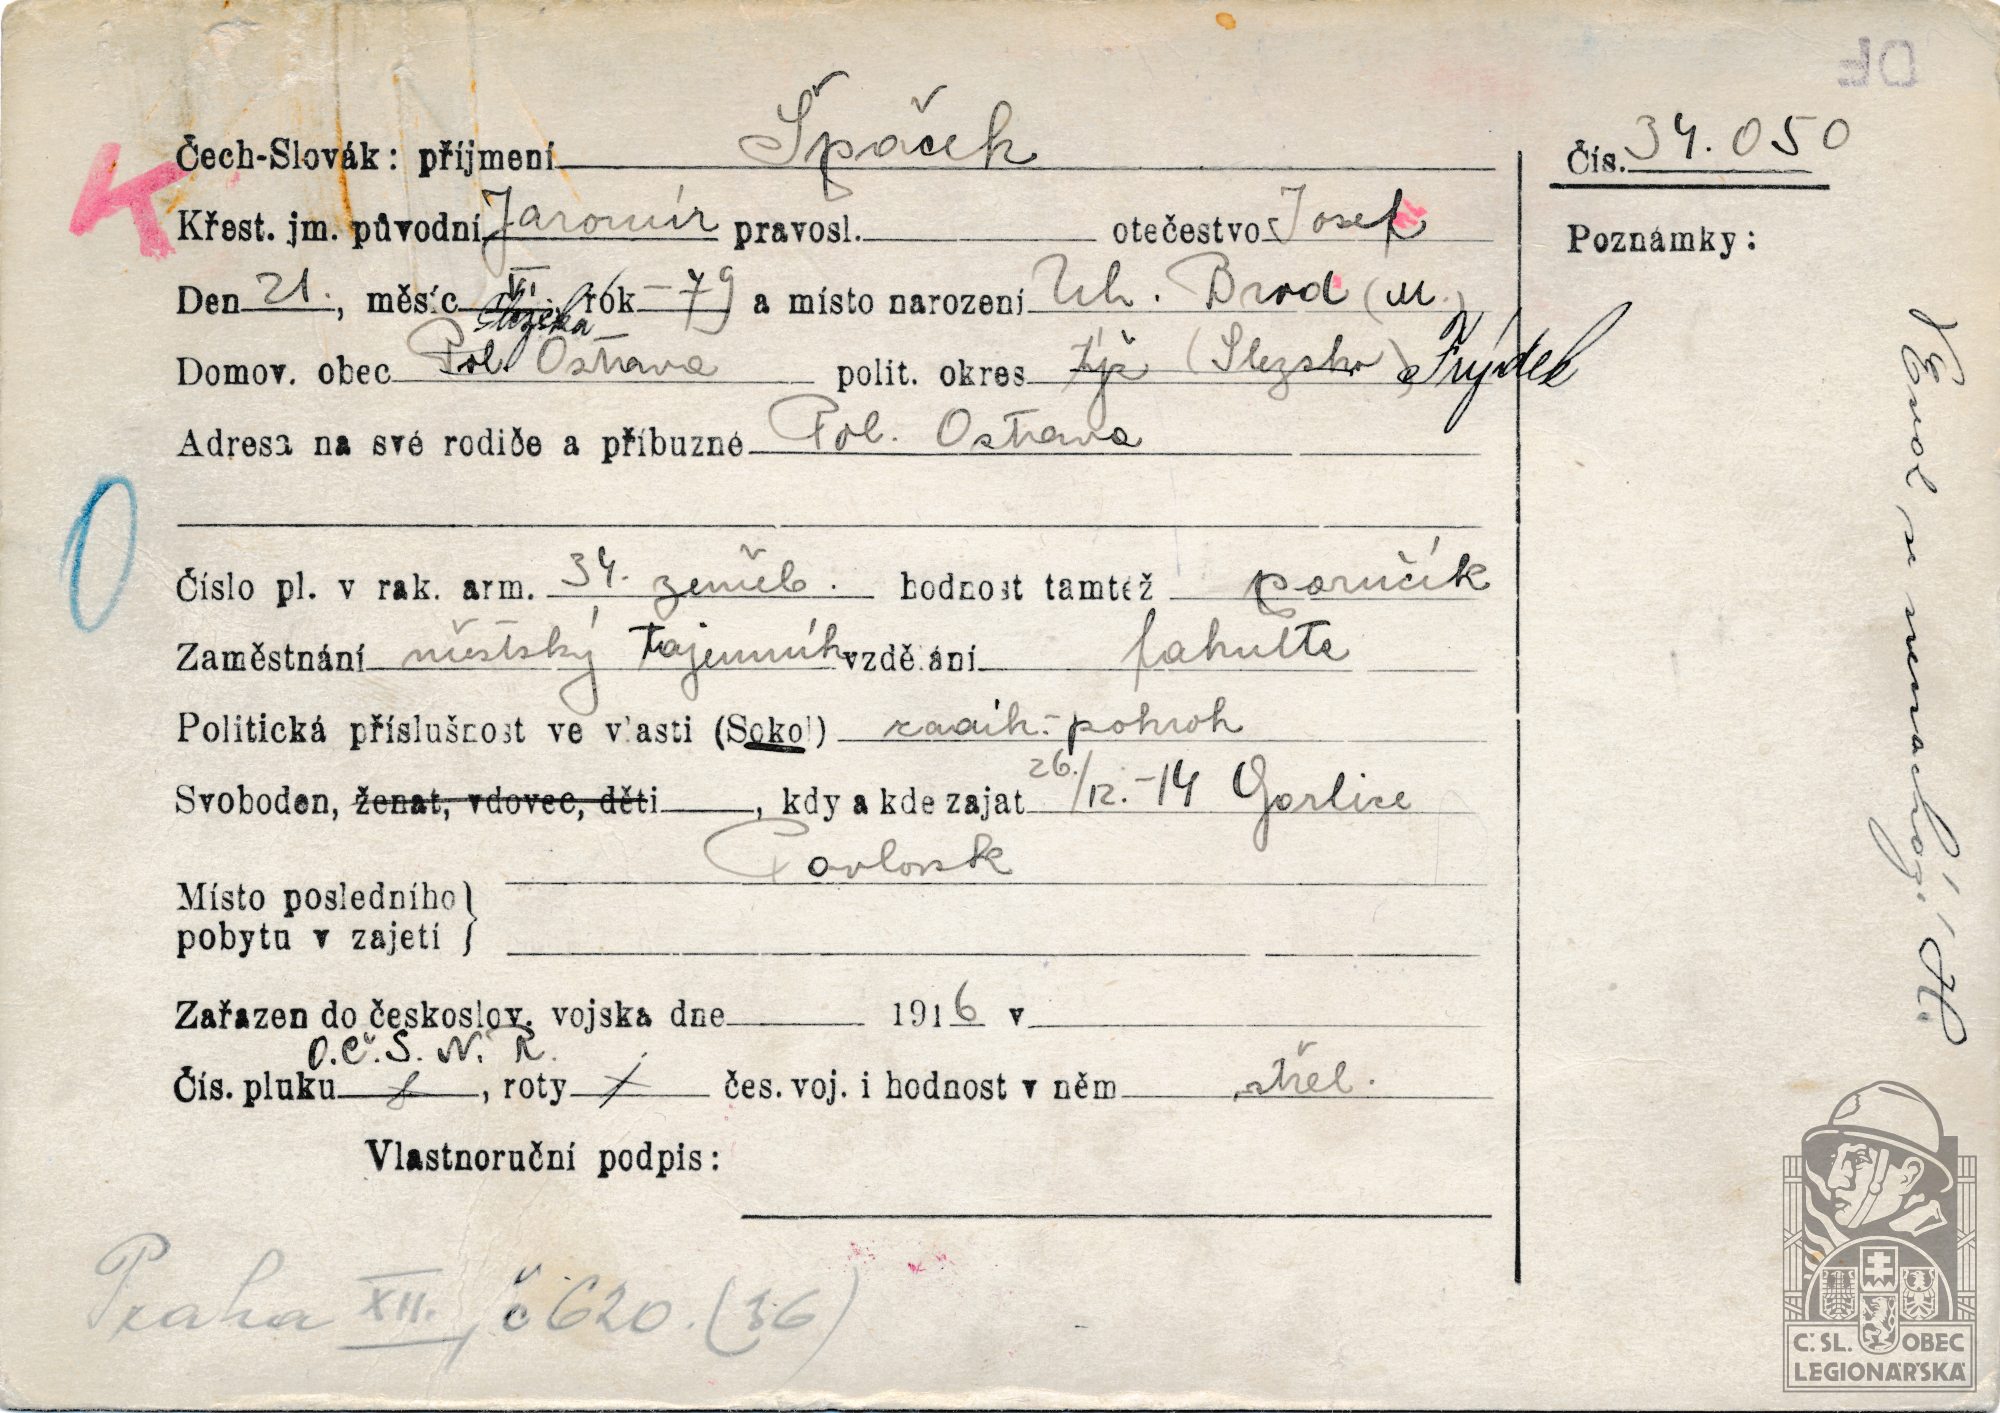 Čech-Slovák: příjmení Špaček
Čís. 34.050
K
Křest. jm. původní Jaromír pravosl. otečestvo Josef
Poznámky:
Den 21., měsíc VI. rok -79 a místo narození Uh. Brod (M.)
Slezská
Domov. obec Pol. Ostrava polit. okres (Slezsko) Frýdek
Adresa na své rodiče a příbuzné Pol. Ostrava
Číslo pl. v rak. arm. 34. zeměb. hodnost tamtéž poručík
Zaměstnání městský tajemník vzdělání fakulta
Politická příslušnost ve vlasti (Sokol) radik.-pokrok
Svoboden, ženat, vdovec, děti, kdy a kde zajat 26./12.-14 Gorlice
Pavlovsk
Místo posledního
pobytu v zajetí
Zařazen do českoslov. vojska dne 1916 v
O.Č.S.N.R.
Čís. pluku, roty čes. voj. i hodnost v něm střel.
Vlastnoruční podpis:
Praha XII., č 620. (36)
se nenachází
Č.SL. OBEC
LEGIONÁŘSKÁ